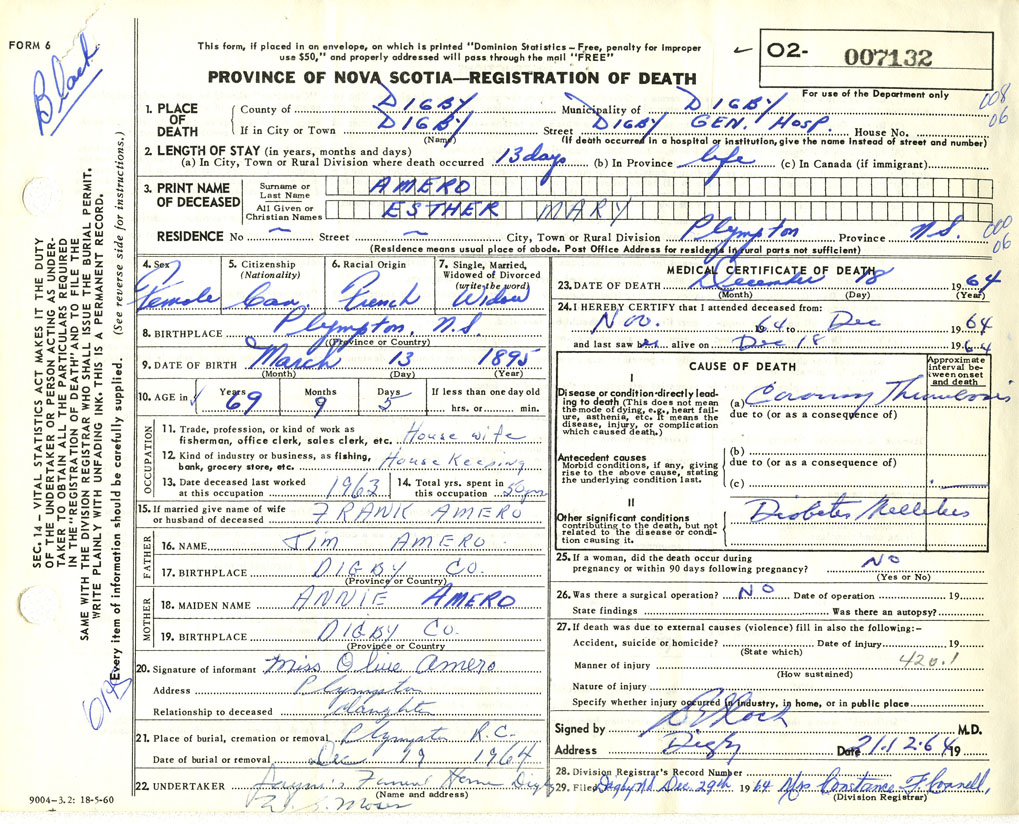 FORM 6
Black
This form, if placed in an envelope, on which is printed "Dominion Statistics – Free, penalty for improper
use $50," and properly addressed will pass through the mail "FREE"
PROVINCE OF NOVA SCOTIA—REGISTRATION OF DEATH
O2- 007132
For use of the Department only
008
06
1. PLACE OF DEATH
County of DIGBY Municipality of DIGBY
If in City or Town DIGBY Street DIGBY GEN. HOSP. House No.
(Name) (If death occurred in a hospital or institution, give the name instead of street and number)
2. LENGTH OF STAY (in years, months and days)
(a) In City, Town or Rural Division where death occurred 13 days (b) In Province life (c) In Canada (if immigrant)
3. PRINT NAME OF DECEASED
Surname or Last Name AMERO
All Given or Christian Names ESTHER MARY
RESIDENCE No ~ Street ~ City, Town or Rural Division Plympton Province N.S.
000
06
(Residence means usual place of abode. Post Office Address for residents in rural parts not sufficient)
4. Sex Female
5. Citizenship (Nationality) Can.
6. Racial Origin French
7. Single, Married, Widowed of Divorced (write the word) Widow
8. BIRTHPLACE Plympton, N.S.
(Province or Country)
9. DATE OF BIRTH March 13 1895
(Month) (Day) (Year)
10. AGE in Years 69 Months 9 Days 5 If less than one day old
hrs. or min.
OCCUPATION
11. Trade, profession, or kind of work as
fisherman, office clerk, sales clerk, etc. House wife
12. Kind of industry or business, as fishing,
bank, grocery store, etc. House Keeping
13. Date deceased last worked
at this occupation 1963
14. Total yrs. spent in
this occupation 50 yrs
15. If married give name of wife
or husband of deceased FRANK AMERO
FATHER
16. NAME JIM AMERO
17. BIRTHPLACE DIGBY CO.
(Province or Country)
MOTHER
18. MAIDEN NAME ANNIE AMERO
19. BIRTHPLACE DIGBY CO.
(Province or Country
20. Signature of informant Miss Olive Amero
Address Plympton
Relationship to deceased daughter
21. Place of burial, cremation or removal Plympton R.C.
Date of burial or removal Dec 19 1964
22. UNDERTAKER Funeral Home Digby
(Name and address)
Moser
9004–3.2: 18-5-60
MEDICAL CERTIFICATE OF DEATH
23. DATE OF DEATH December 18 1964
(Month) (Day) (Year)
24. I HEREBY CERTIFY that I attended deceased from:
Nov. 64 to Dec 64
and last saw her alive on Dec 18 1964
CAUSE OF DEATH
Approximate interval between onset and death
I
Disease or condition directly leading to death (This does not mean the mode of dying, e.g., heart failure, asthenia, etc. It means the disease, injury, or complication which caused death.)
(a) Coronary Thrombosis
due to (or as a consequence of)
Antecedent causes
Morbid conditions, if any, giving rise to the above cause, stating the underlying condition last.
(b)
due to (or as a consequence of)
(c)
II
Other significant conditions
contributing to the death, but not related to the disease or condition causing it.
Diabetes Mellitus
25. If a woman, did the death occur during
pregnancy or within 90 days following pregnancy? NO
(Yes or No)
26. Was there a surgical operation? NO Date of operation 19
State findings Was there an autopsy?
27. If death was due to external causes (violence) fill in also the following:-
Accident, suicide or homicide? Date of injury 19
(State which)
420.1
Manner of injury
(How sustained)
Nature of injury
Specify whether injury occurred in industry, in home, or in public place
Signed by M.D.
Address Digby Date 21.12.64 19
28. Division Registrar's Record Number
29. Filed Digby NS. Dec. 29th 1964 Mrs Constance F. Connell,
(Division Registrar)
SEC. 14 – VITAL STATISTICS ACT MAKES IT THE DUTY
OF THE UNDERTAKER OR PERSON ACTING AS UNDER-
TAKER TO OBTAIN ALL THE PARTICULARS REQUIRED
IN THE "REGISTRATION OF DEATH" AND TO FILE THE
SAME WITH THE DIVISION REGISTRAR WHO SHALL ISSUE THE BURIAL PERMIT.
WRITE PLAINLY WITH UNFADING INK. THIS IS A PERMANENT RECORD.
Every item of information should be carefully supplied. (See reverse side for instructions.)